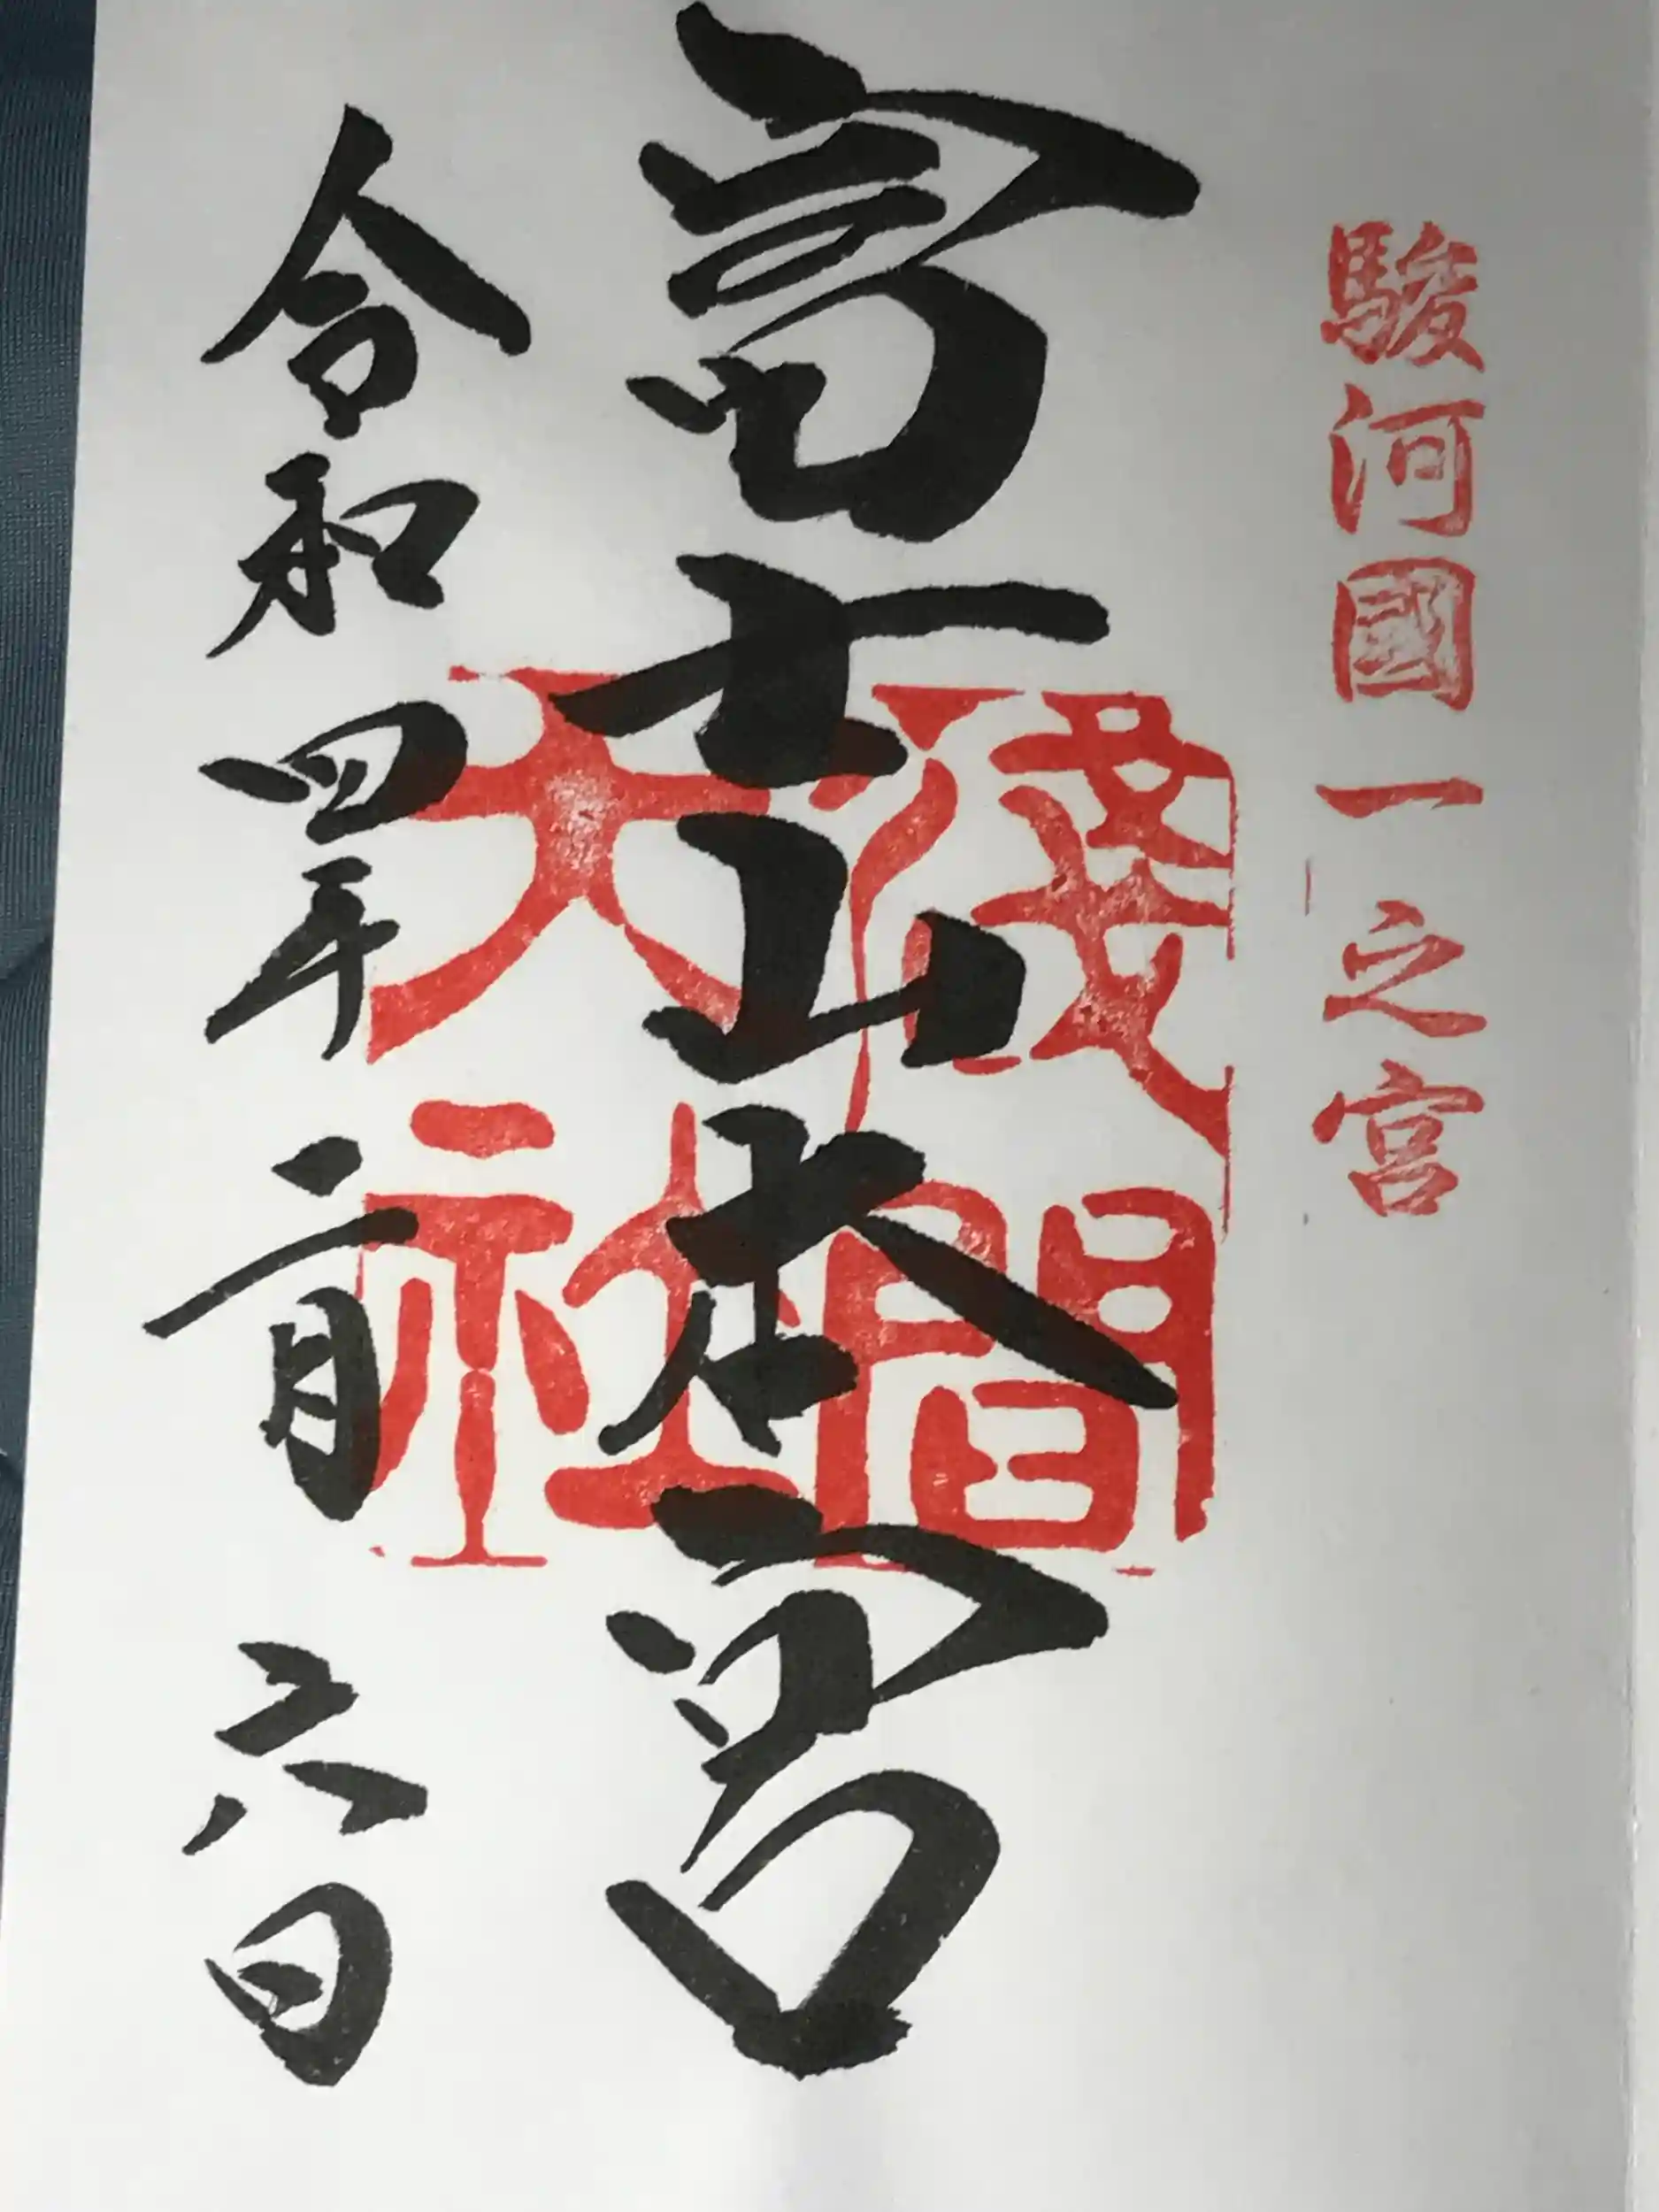 駿河國一之宮
富士山本宮
淺間
大社
令和四年二月六日